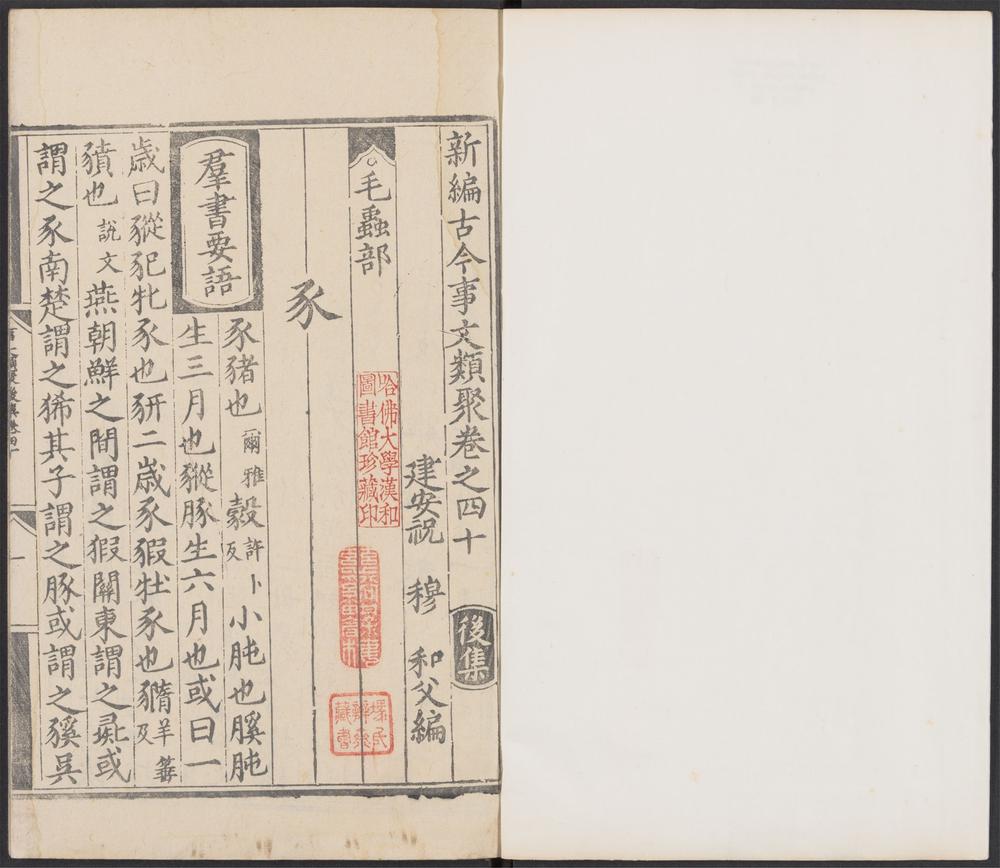 新編古今事文類聚卷之四十 後集
建安祝 穆 和父編
毛蟲部
哈佛大學漢和
圖書館珍藏印
豕
羣書要語
豕豬也爾雅豰許卜反小豘也豯豘
生三月也豵豚生六月也或曰一
歳曰豵豝牝豕也豜二歳豕豭牡豕也
豶也說文燕朝鮮之間謂之豭關東謂之彘或
謂之豕南楚謂之狶其子謂之豚或謂之豯吳